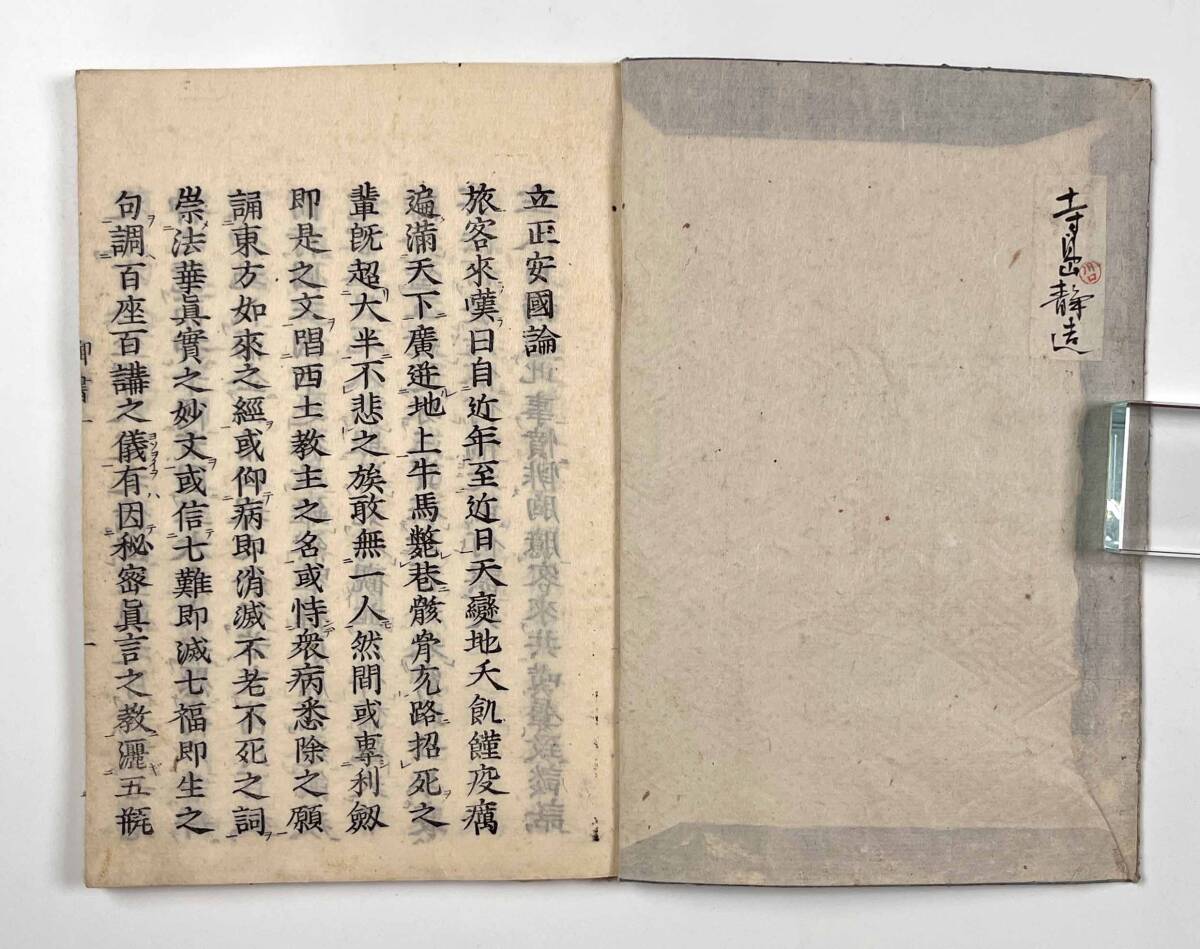 寺島静造
川口
立正安國論
旅客來嘆曰自近年至近日天變地夭飢饉疫癘
遍滿天下廣迸地上牛馬斃巷骸骨充路招死之
輩旣超大半不悲之族敢無一人然間或專利劔
即是之文唱西土敎主之名或恃衆病悉除之願
誦東方如來之經或仰病即消滅不老不死之詞
崇法華眞實之妙文或信七難即滅七福即生之
句調百座百講之儀有因秘密眞言之敎灑五瓶
御書
一